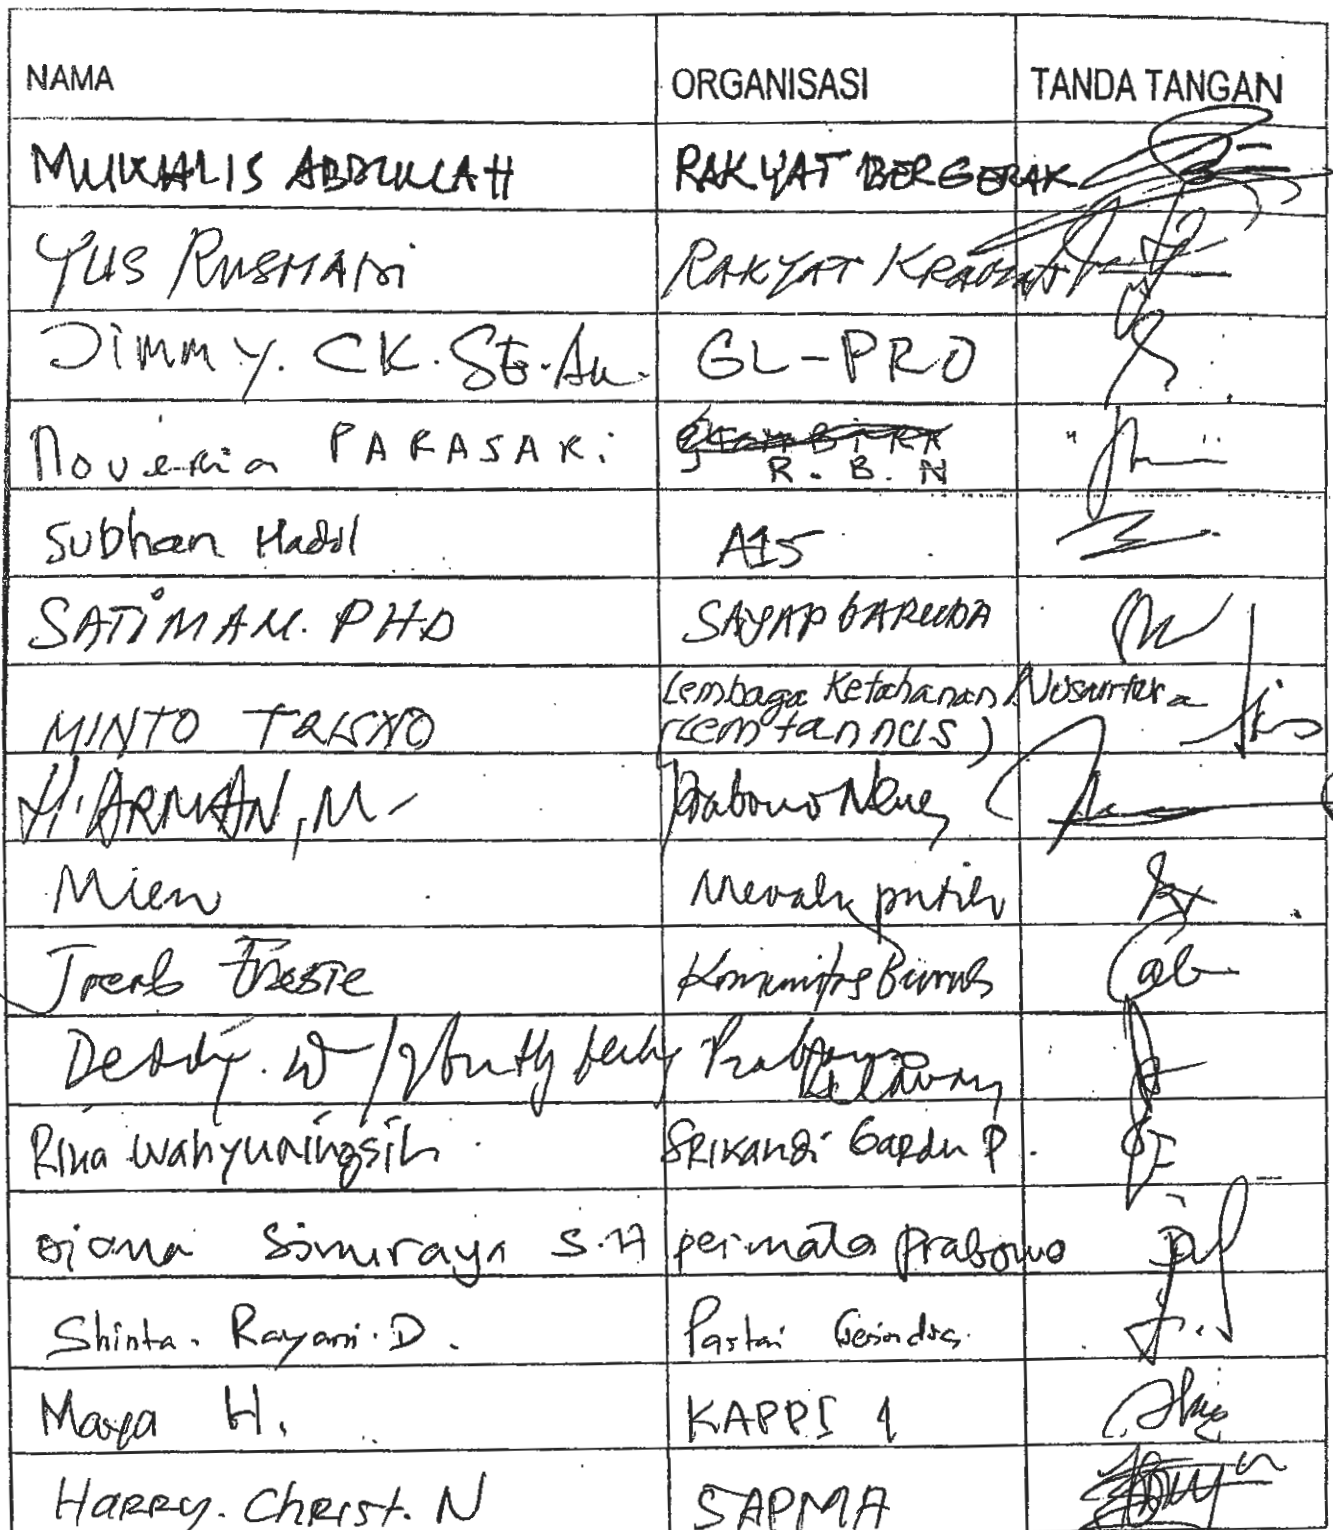 NAMA ORGANISASI TANDA TANGAN
MUKHALIS ABDULLAH RAKYAT BERGERAK
YUS RUSMADI RAKYAT
Jimmy. CK. SE. Ak. GL-PRO
Noveria PARASARi
R. B. N
Subhan Hadil A15
SATIMAN. PHD SAYAP GARUDA
Lembaga Ketahanan Nusantara
MINTO TRISNO (Lemtannas)
H. ARMAN, M Prabowo
Mien Merah putih
Komunitas
Deddy. W / Prabowo
Rina Wahyuningsih SRIKANDI Gardu P.
Diana Simuraya S.H permata prabowo
Shinta. Rayani. D. Partai Gerindra.
Maya H. KAPPI 1
HARRY. Christ. N SAPMA